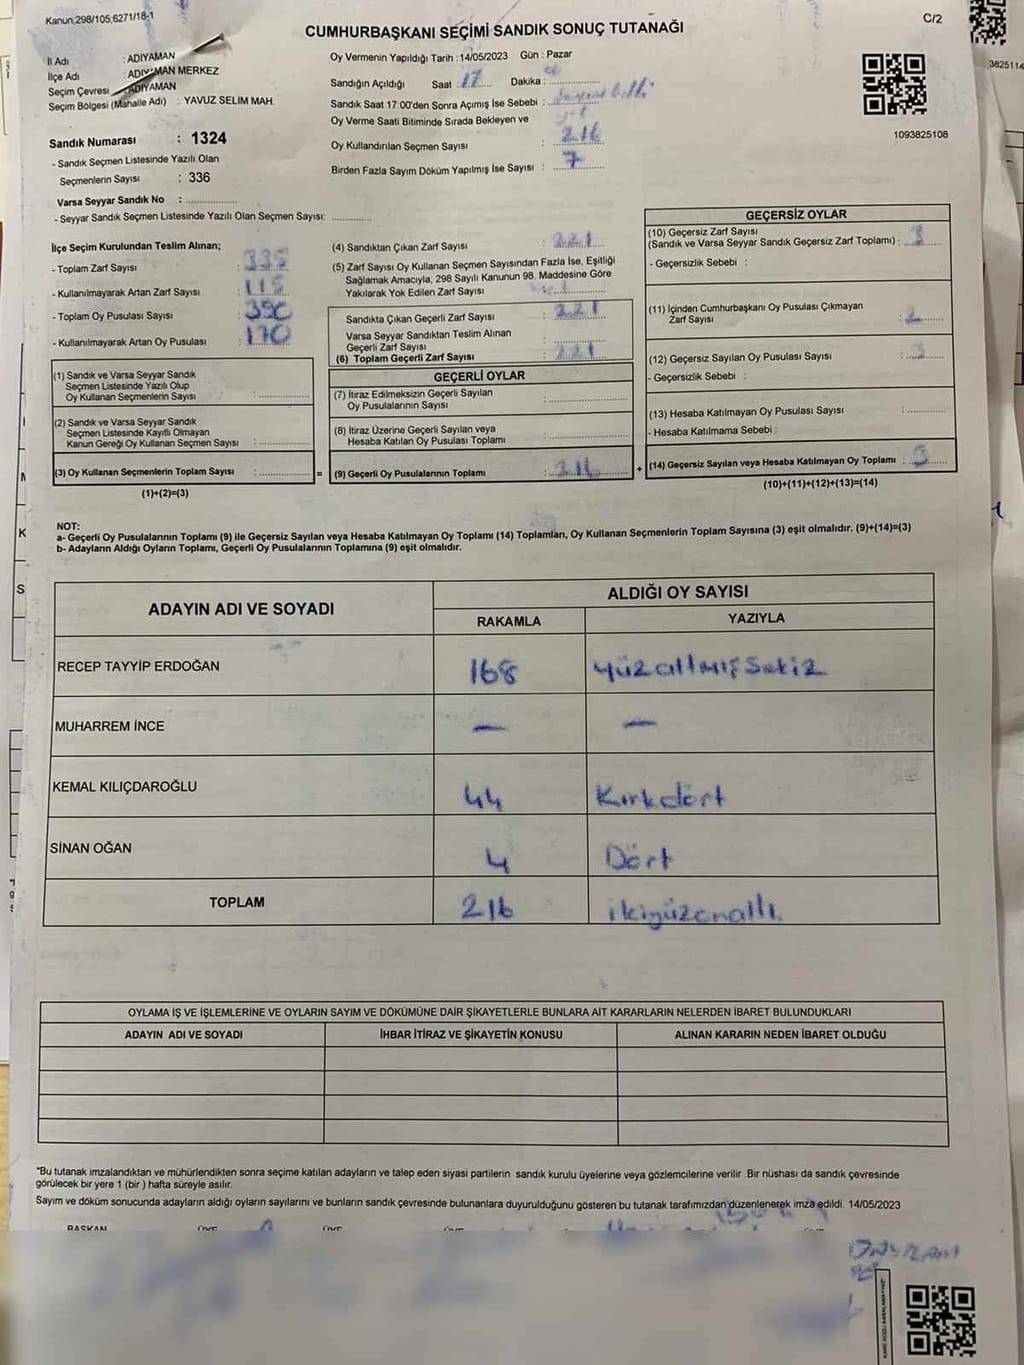 Kanun,298/105;6271/18-1
C/2
CUMHURBAŞKANI SEÇİMİ SANDIK SONUÇ TUTANAĞI
İl Adı : ADIYAMAN
İlçe Adı : ADIYAMAN MERKEZ
Seçim Çevresi : ADIYAMAN
Seçim Bölgesi (Mahalle Adı) : YAVUZ SELİM MAH.
Oy Vermenin Yapıldığı Tarih : 14/05/2023 Gün : Pazar
Sandığın Açıldığı Saat : 17 Dakika :
Sandık Saat 17:00'den Sonra Açımış İse Sebebi :
Oy Verme Saati Bitiminde Sırada Bekleyen ve
Oy Kullandırılan Seçmen Sayısı : 216
Birden Fazla Sayım Döküm Yapılmış İse Sayısı : 7
3825114
1093825108
Sandık Numarası : 1324
- Sandık Seçmen Listesinde Yazılı Olan
Seçmenlerin Sayısı : 336
Varsa Seyyar Sandık No :
- Seyyar Sandık Seçmen Listesinde Yazılı Olan Seçmen Sayısı:
İlçe Seçim Kurulundan Teslim Alınan;
- Toplam Zarf Sayısı : 335
- Kullanılmayarak Artan Zarf Sayısı : 115
- Toplam Oy Pusulası Sayısı : 390
- Kullanılmayarak Artan Oy Pusulası : 170
(1) Sandık ve Varsa Seyyar Sandık
Seçmen Listesinde Yazılı Olup
Oy Kullanan Seçmenlerin Sayısı :
(2) Sandık ve Varsa Seyyar Sandık
Seçmen Listesinde Kayıtlı Olmayan
Kanun Gereği Oy Kullanan Seçmen Sayısı :
(3) Oy Kullanan Seçmenlerin Toplam Sayısı :
(1)+(2)=(3)
=
(4) Sandıktan Çıkan Zarf Sayısı : 221
(5) Zarf Sayısı Oy Kullanan Seçmen Sayısından Fazla İse, Eşitliği
Sağlamak Amacıyla; 298 Sayılı Kanunun 98. Maddesine Göre
Yakılarak Yok Edilen Zarf Sayısı :
Sandıkta Çıkan Geçerli Zarf Sayısı : 221
Varsa Seyyar Sandıktan Teslim Alınan
Geçerli Zarf Sayısı
(6) Toplam Geçerli Zarf Sayısı : 221
GEÇERLİ OYLAR
(7) İtiraz Edilmeksizin Geçerli Sayılan
Oy Pusulalarının Sayısı :
(8) İtiraz Üzerine Geçerli Sayılan veya
Hesaba Katılan Oy Pusulası Toplamı :
(9) Geçerli Oy Pusulalarının Toplamı : 216
+
GEÇERSİZ OYLAR
(10) Geçersiz Zarf Sayısı
(Sandık ve Varsa Seyyar Sandık Geçersiz Zarf Toplamı) : 3
- Geçersizlik Sebebi :
(11) İçinden Cumhurbaşkanı Oy Pusulası Çıkmayan
Zarf Sayısı : 2
(12) Geçersiz Sayılan Oy Pusulası Sayısı : 3
- Geçersizlik Sebebi :
(13) Hesaba Katılmayan Oy Pusulası Sayısı :
- Hesaba Katılmama Sebebi :
(14) Geçersiz Sayılan veya Hesaba Katılmayan Oy Toplamı :
(10)+(11)+(12)+(13)=(14)
NOT:
a- Geçerli Oy Pusulalarının Toplamı (9) ile Geçersiz Sayılan veya Hesaba Katılmayan Oy Toplamı (14) Toplamları, Oy Kullanan Seçmenlerin Toplam Sayısına (3) eşit olmalıdır. (9)+(14)=(3)
b- Adayların Aldığı Oyların Toplamı, Geçerli Oy Pusulalarının Toplamına (9) eşit olmalıdır.
ADAYIN ADI VE SOYADI
ALDIĞI OY SAYISI
RAKAMLA YAZIYLA
RECEP TAYYİP ERDOĞAN 168 Yüzaltmışsekiz
MUHARREM İNCE — —
KEMAL KILIÇDAROĞLU 44 Kırkdört
SİNAN OĞAN 4 Dört
TOPLAM 216 ikiyüzonaltı
OYLAMA İŞ VE İŞLEMLERİNE VE OYLARIN SAYIM VE DÖKÜMÜNE DAİR ŞİKAYETLERLE BUNLARA AİT KARARLARIN NELERDEN İBARET BULUNDUKLARI
ADAYIN ADI VE SOYADI İHBAR İTİRAZ VE ŞİKAYETİN KONUSU ALINAN KARARIN NEDEN İBARET OLDUĞU
*Bu tutanak imzalandıktan ve mühürlendikten sonra seçime katılan adayların ve talep eden siyasi partilerin sandık kurulu üyelerine veya gözlemcilerine verilir. Bir nüshası da sandık çevresinde
görülecek bir yere 1 (bir ) hafta süreyle asılır.
Sayım ve döküm sonucunda adayların aldığı oyların sayılarını ve bunların sandık çevresinde bulunanlara duyurulduğunu gösteren bu tutanak tarafımızdan düzenlenerek imza edildi. 14/05/2023
BAŞKAN ÜYE ÜYE ÜYE